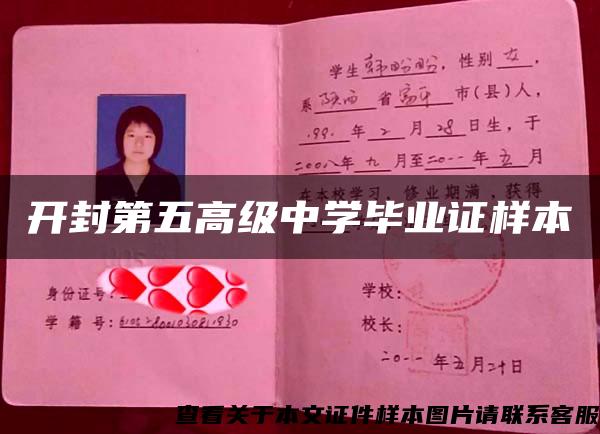 学生韩盼盼，性别女，
系陕西省富平市(县)人，
199 年2月28日生，于
二00八年九月至二0一一年五月
在本校学习，修业期满，获得
开封第五高级中学毕业证样本
身份证号：
学籍号：
学校：
校长：
二0一一年五月二十日
查看关于本文证件样本图片请联系客服